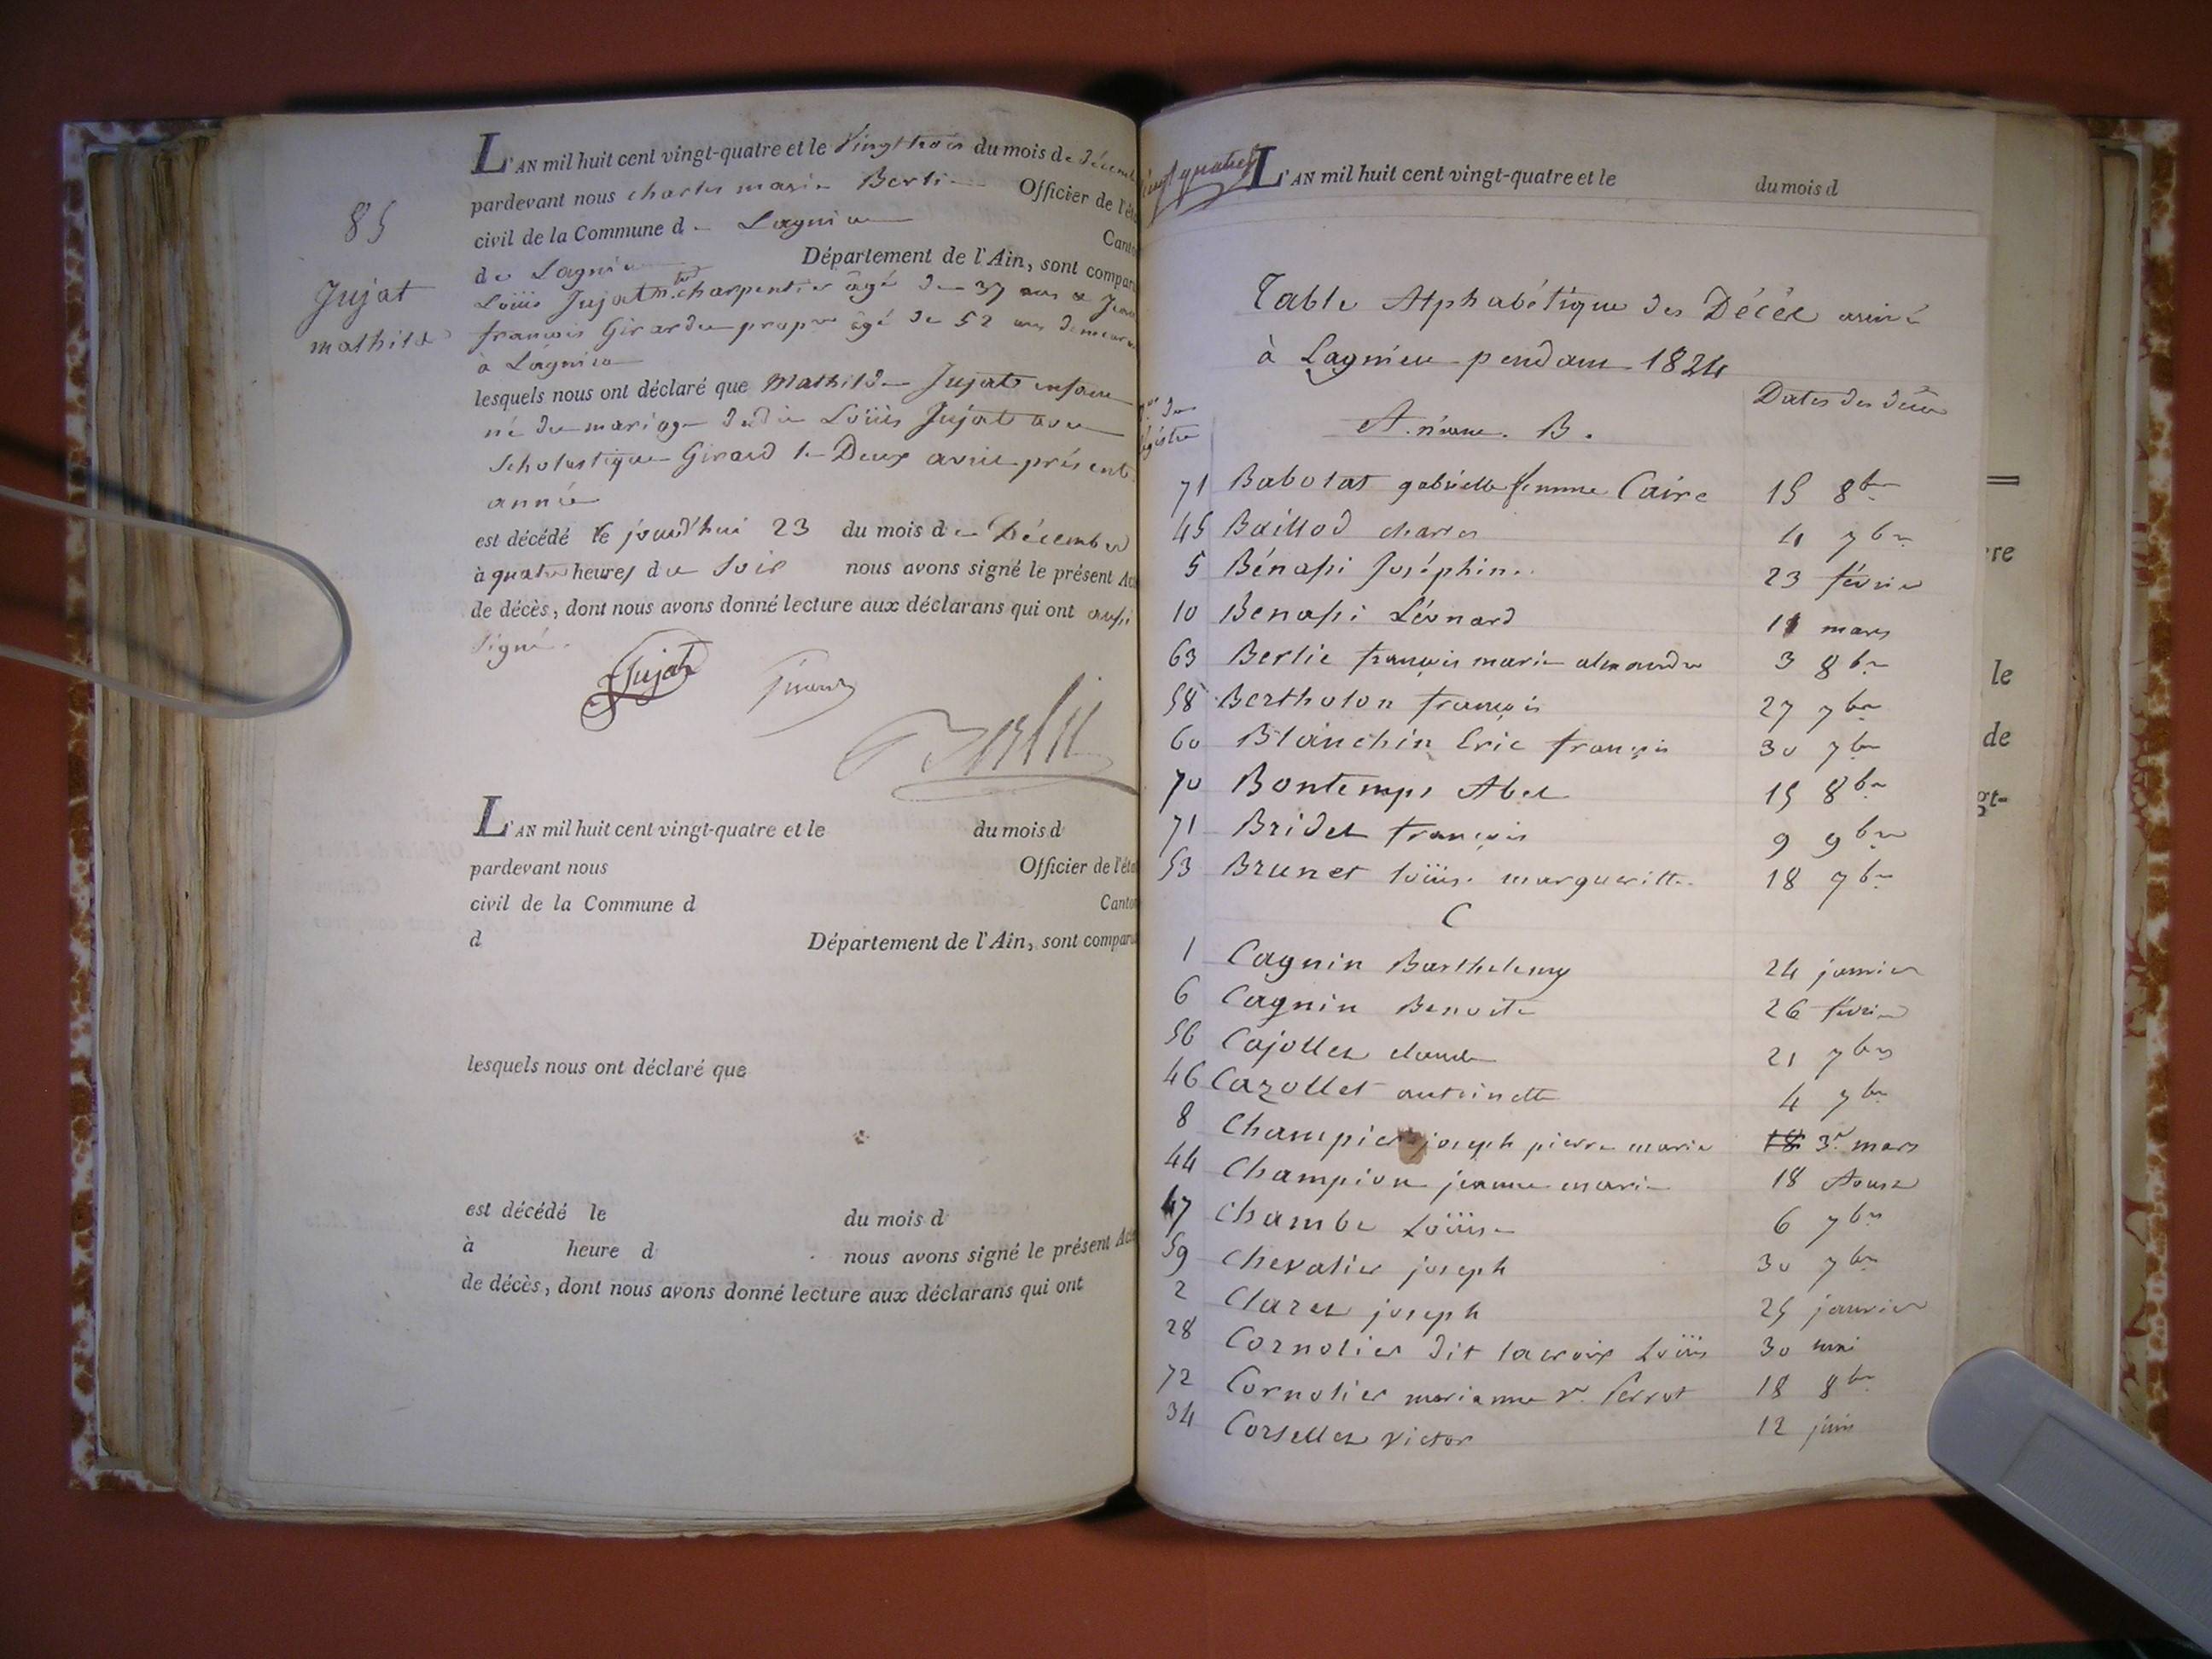 85
Jujat
mathilde
L'AN mil huit cent vingt-quatre et le Vingt trois du mois de Décemb
pardevant nous charles marie Berlie Officier de l'éta
civil de la Commune de Lagnieu Canto
de Lagnieu Département de l'Ain, sont compar
Loüis Jujat m.tre charpentier âgé de 37 ans & Jean
françois Girard propre âgé de 52 ans demeura
à Lagnieu
lesquels nous ont déclaré que Mathilde Jujat enfant
né du mariage dudit Loüis Jujat avec
Scholastique Girard le Deux avril présent
année
est décédé le jourd'hui 23 du mois de Décembre
à quatre heures du Soir nous avons signé le présent Act
de décès, dont nous avons donné lecture aux déclarans qui ont aussi
signé.
Jujat Girard
Berlie
L'AN mil huit cent vingt-quatre et le du mois d
pardevant nous Officier de l'éta
civil de la Commune d Canto
d Département de l'Ain, sont comparu
lesquels nous ont déclaré que
est décédé le du mois d
à heure d nous avons signé le présent Acte
de décès, dont nous avons donné lecture aux déclarans qui ont
vingt quatre
L'AN mil huit cent vingt-quatre et le du mois d
Table Alphabétique des Décès arrivé
à Lagnieu pendant 1824
Dates des décès
A. néant. B.
71 Babolat gabrielle femme Caire 15 8bre
45 Baillod charles 4 7bre
5 Bénassi Joséphine 23 février
10 Benassi Léonard 11 mars
63 Berlie françois marie almandre 3 8bre
58 Bertholon françois 27 7bre
60 Blanchin Eric françois 30 7bre
70 Bontemps Abel 15 8bre
71 Bridet françois 9 9bre
53 Brunet loüise margueritte 18 7bre
C
1 Cagnin Barthelemy 24 janvier
6 Cagnin Benoite 26 février
56 Cajollet claude 21 7bre
46 Cazollet antoinette 4 7bre
8 Champier joseph pierre marie 18 3 mars
44 Champion jeanne marie 18 Aoust
47 Chambe Loüise 6 7bre
59 Chevalier joseph 30 7bre
2 Claret joseph 25 janvier
28 Cornolier dit lacroix Loüis 30 mai
72 Cornolier marianne ve. Perrot 18 8bre
34 Corsellet victor 12 juin
re
le
de
gt-